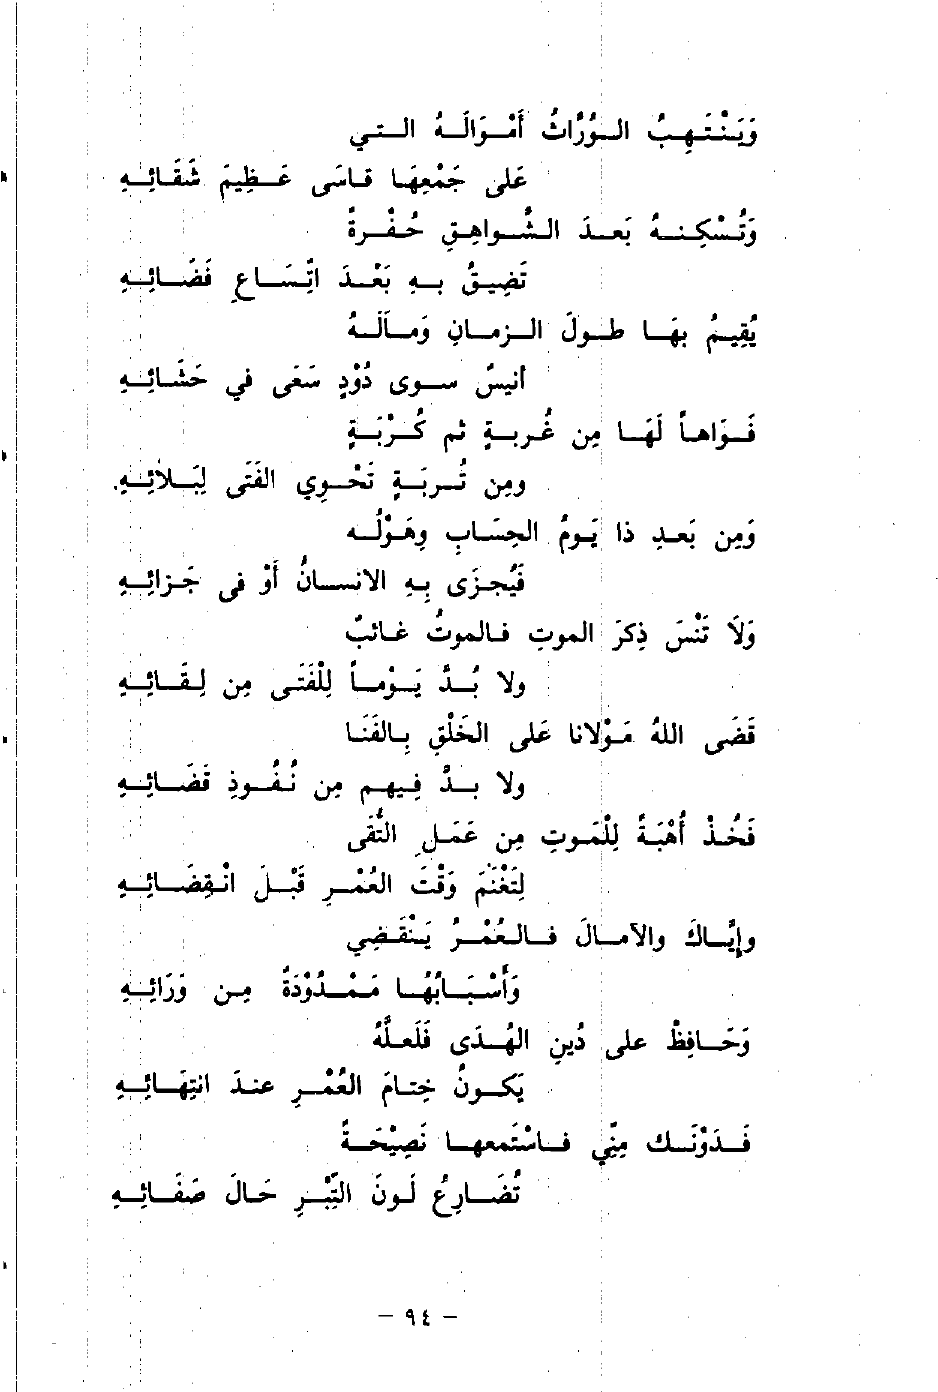 وَيَنْتَهِبُ الوُرَّاثُ أَمْوَالَهُ التي
عَلى جَمْعِهَا قاسَى عَظِيمَ شَقَائِهِ
وَتُسْكِنهُ بَعدَ الشَّواهِقِ حُفْرةً
تَضِيقُ بهِ بَعْدَ اتِّسَاعِ فَضَائِهِ
يُقِيمُ بهَا طولَ الزمانِ وَمالَهُ
أنيسٌ سوى دُوْدٍ سَعَى في حَشَائِهِ
فَوَاهاً لَهَا مِن غُربةٍ ثم كُرْبَةٍ
ومِن تُربَةٍ تَحْوِي الفَتَى لِبَلائِهِ.
وَمِن بَعدِ ذا يَومُ الحِسَابِ وِهَوْلُه
فَيُجزَى بِهِ الانسانُ أوْ في جَزائِهِ
وَلاَ تَنْسَ ذِكرَ الموتِ فالموتُ غائبٌ
ولا بُدَّ يَوْماً لِلْفَتَى مِن لِقَائِهِ
قَضَى اللهُ مَوْلانا عَلى الخَلْقِ بِالفَنَا
ولا بدَّ فِيهم مِن نُفُوذِ قَضَائِهِ
فَخُذْ أُهْبَةً لِلْمَوتِ مِن عَمَلِ التُّقَى
لِتَغْنَمَ وَقْتَ العُمْرِ قَبْلَ انْقِضَائِهِ
وإِيَّاكَ والآمالَ فالعُمْرُ يَنْقَضِي
وَأَسْبَابُهُا مَمْدُوْدَةُ مِن وَرَائِهِ
وَحَافِظْ على دُينِ الهُدَى فَلَعلَّهُ
يَكونُ خِتامَ العُمْرِ عندَ انتِهَائِهِ
فَدَوْنَك مِنِّي فاسْتَمعها نَصِيْحَةً
تُضَارِعُ لَونَ التِّبْرِ حَالَ صَفَائِهِ
- ٩٤ -